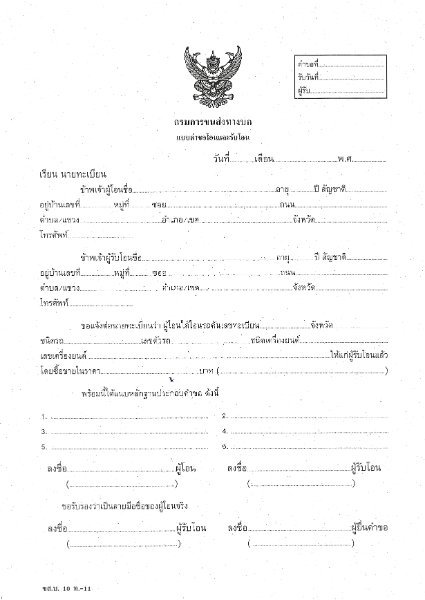 คำขอที่
รับวันที่
ผู้รับ
กรมการขนส่งทางบก
แบบคำขอโอนและรับโอน
วันที่ เดือน พ.ศ.
เรียน นายทะเบียน
ข้าพเจ้าผู้โอนชื่อ อายุ ปี สัญชาติ
อยู่บ้านเลขที่ หมู่ที่ ซอย ถนน
ตำบล/แขวง อำเภอ/เขต จังหวัด
โทรศัพท์
ข้าพเจ้าผู้รับโอนชื่อ อายุ ปี สัญชาติ
อยู่บ้านเลขที่ หมู่ที่ ซอย ถนน
ตำบล/แขวง อำเภอ/เขต จังหวัด
โทรศัพท์
ขอแจ้งต่อนายทะเบียนว่า ผู้โอนได้โอนรถคันเลขทะเบียน จังหวัด
ชนิดรถ เลขตัวรถ ชนิดเครื่องยนต์
เลขเครื่องยนต์ ให้แก่ผู้รับโอนแล้ว
โดยซื้อขายในราคา บาท ( )
พร้อมนี้ได้แนบหลักฐานประกอบคำขอ ดังนี้
1. 2.
3. 4.
5. 6.
ลงชื่อ ผู้โอน ลงชื่อ ผู้รับโอน
( ) ( )
ขอรับรองว่าเป็นลายมือชื่อของผู้โอนจริง
ลงชื่อ ผู้รับโอน ลงชื่อ ผู้ยื่นคำขอ
( ) ( )
ขส.บ. 10 ท.-11